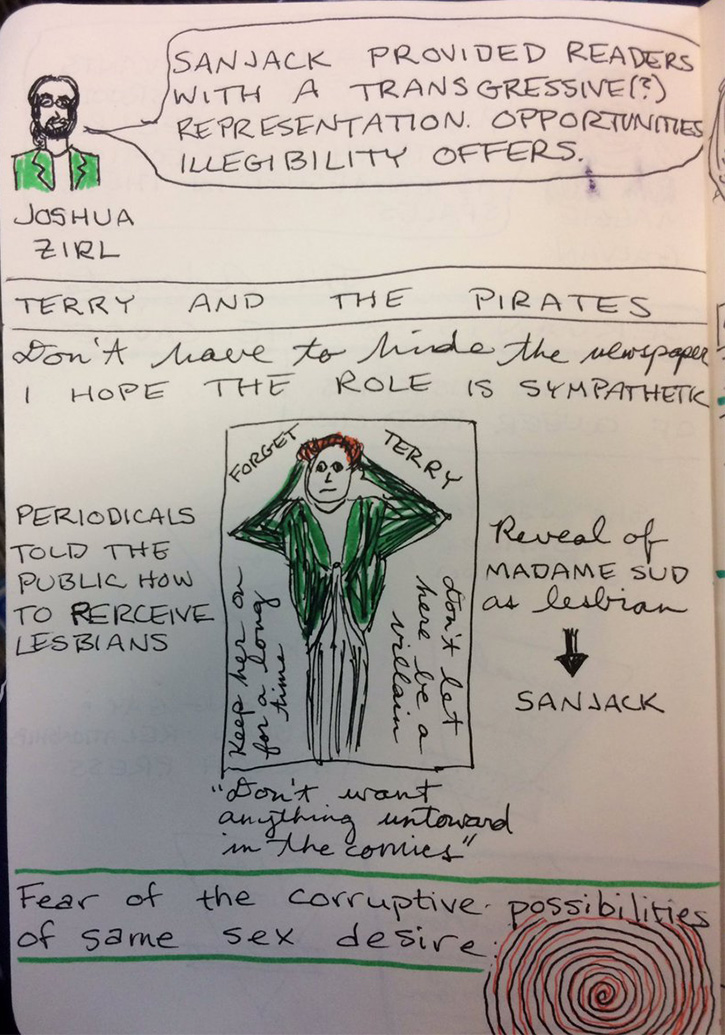 SANJACK PROVIDED READERS
WITH A TRANSGRESSIVE(?)
REPRESENTATION. OPPORTUNITIES
ILLEGIBILITY OFFERS.
JOSHUA
ZIRL
TERRY AND THE PIRATES
Don't have to hinde the newspaper
I HOPE THE ROLE IS SYMPATHETIC
FORGET TERRY
Keep her on
for a long
time
Don't let
here be a
villain
PERIODICALS
TOLD THE
PUBLIC HOW
TO PERCEIVE
LESBIANS
Reveal of
MADAME SUD
as lesbian
SANJACK
"Don't want
anything untoward
in the comics"
Fear of the corruptive possibilities
of same sex desire.